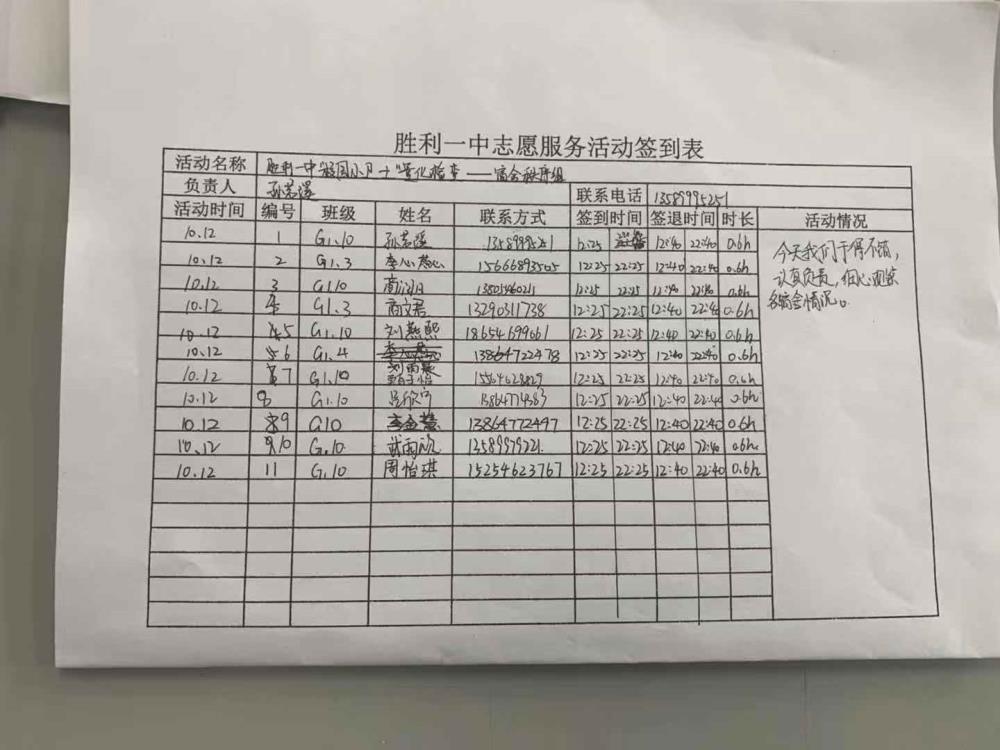 胜利一中志愿服务活动签到表
活动名称 胜利一中"校园小卫士"量化检查——宿舍秩序组
负责人 联系电话 13589995251
活动时间 编号 班级 姓名 联系方式 签到时间 签退时间 时长 活动情况
10.12 1 G1.10 13589995251 12:25 12:40 22:40 0.6h
10.12 2 G1.3 李心慈 15666893505 12:25 22:25 12:40 22:40 0.6h
10.12 3 G1.10 12:25 22:25 12:40 22:40 0.6h
10.12 4 G1.3 商文君 13290311738 12:25 22:25 12:40 22:40 0.6h
10.12 5 G1.10 刘燕熙 18654699661 12:25 22:25 12:40 22:40 0.6h
10.12 6 G1.4 13864722478 12:25 22:25 12:40 22:40 0.6h
10.12 7 G1.10 15564628829 12:25 22:25 12:40 22:40 0.6h
10.12 8 G1.10 12:25 22:25 12:40 22:40 0.6h
10.12 9 G10 13864772497 12:25 22:25 12:40 22:40 0.6h
10.12 10 G.10 12:25 22:25 12:40 22:40 0.6h
10.12 11 G.10 周怡琪 15254623767 12:25 22:25 12:40 22:40 0.6h
今天我们干得不错,
认真负责,细心观察
各宿舍情况。